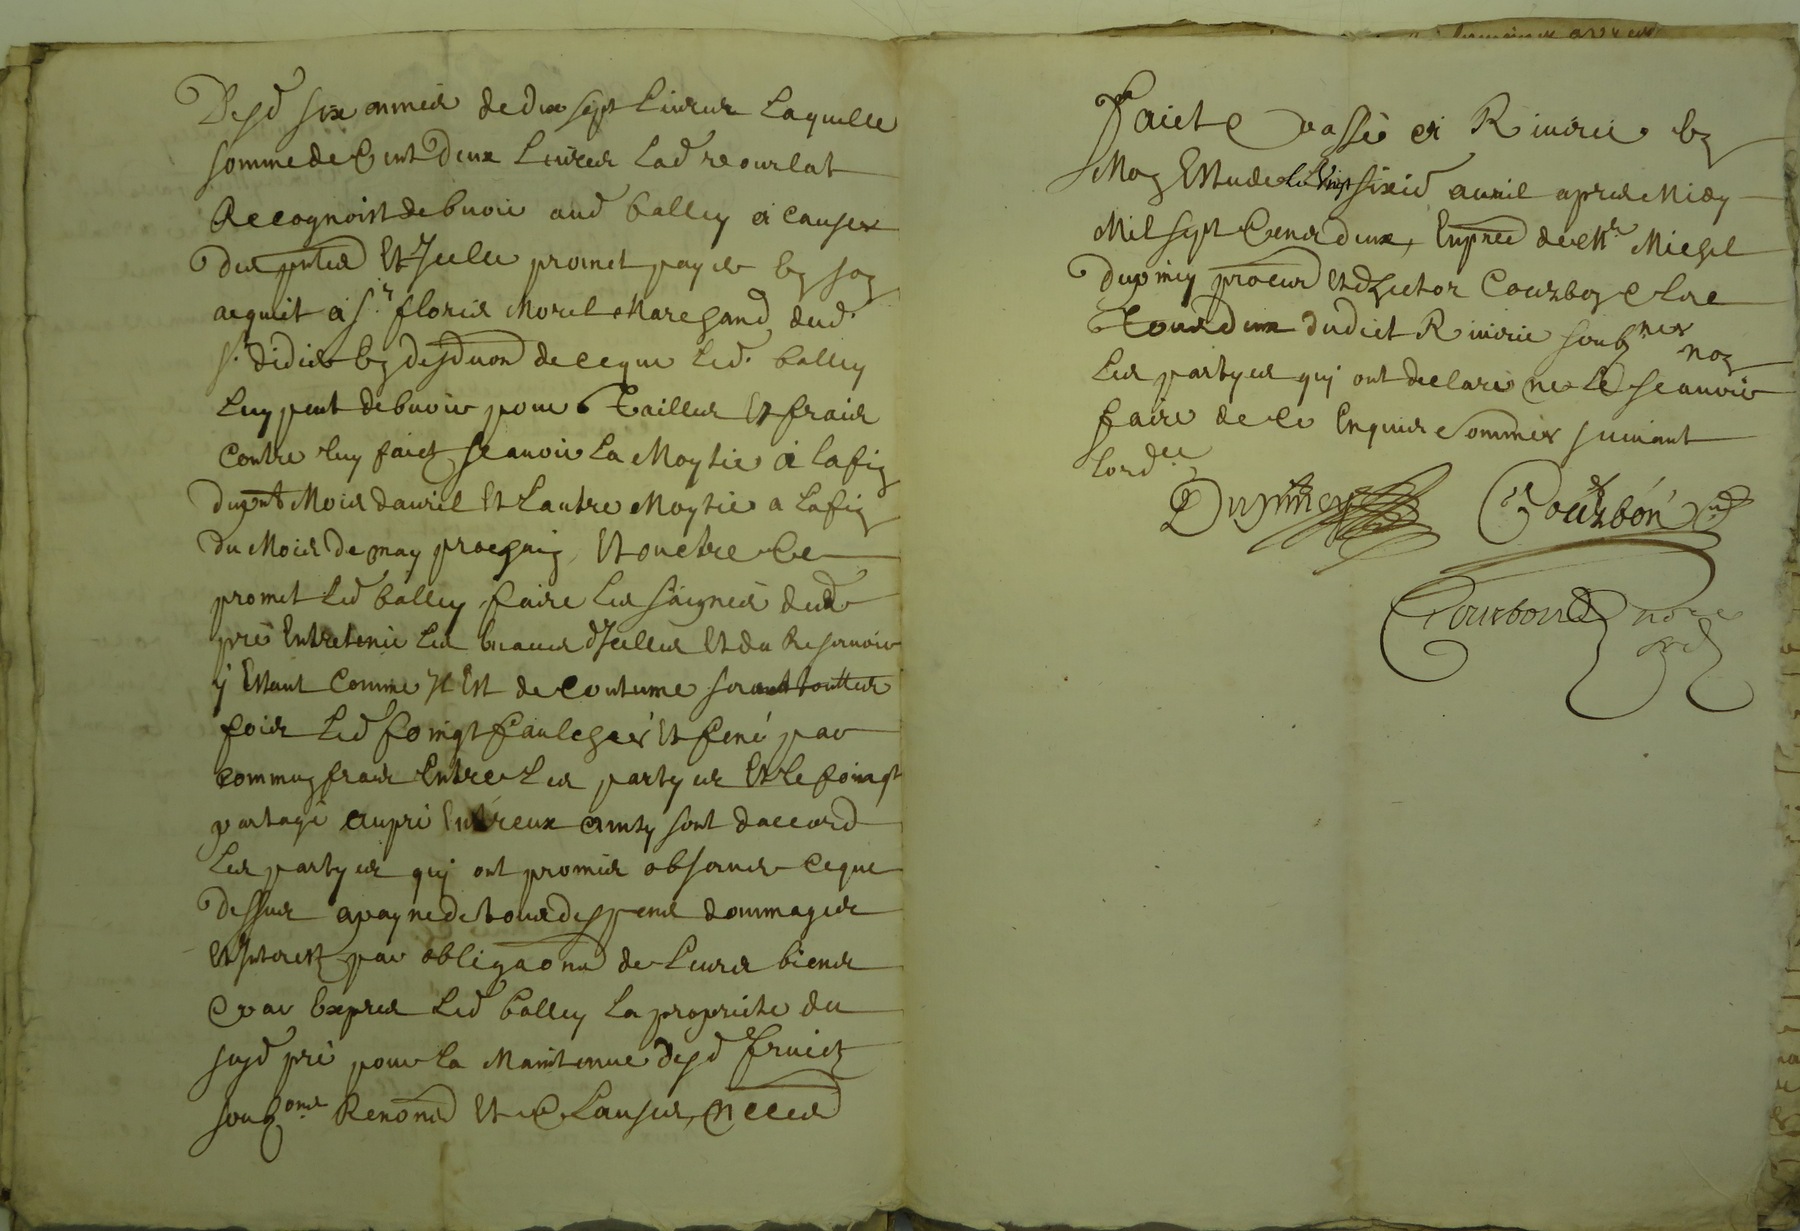 Desd six années de dix sept Livres Laquelle
somme de Cent Deux Livres Lad recourlat
Recognoist debvoir aud balley à causes
Des pntes Et Icelle promet payer en son
acquit à Sr. floris Morel Marchand dud.
St. didier en desduon de ce que Led. balley
Luy peut debvoir pour Tailles Et frais
Contre luy faict scavoir La Moytié à la fin
Du pnt Mois davril Et Lautre Moytié a la fin
Du Mois De may prochain, Et outre Ce
promet Led balley faire Les saignés dud
pré Entretenir Les biaues dIcelles Et du Reservoir
y Estant Comme Il Est de coutume sera touttes
fois Led foingt faulché Et fené par
commun frais Entre Les partyes Et Le foingt
partagé au pré Entreux ainsy sont daccord
Les partyes quy ont promis observer Ce que
Dessus a payne de tous despens dommages
Et Interest par obligaons de Leurs biens
Et par Expres Led balley La proprieté du
susd pré pour La Maintenue desd fruict
soubons Renons Et Clauses neccs
Faict Et passé a Riverie En
Mon Estude Le Vingt sixie avril apres Midy
Mil sept Cents deux, En pnce de Mr. Michel
Dupiney procur Et Hector Courbon Clerc
Tous deux dudict Riverie soubnes non
Les partyes quy ont declaré ne Le scavoir
faire de Ce Enquis Sommés suivant
Lordce
Dupiney Courbon
Courbon nore